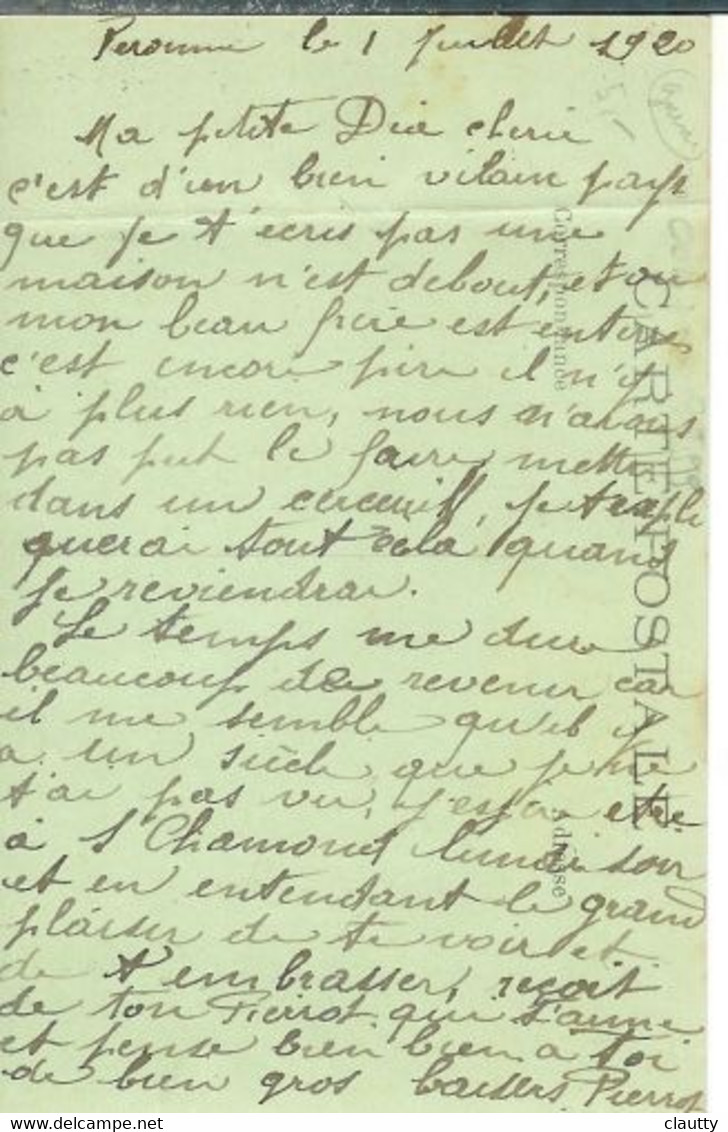 Peronne le 1 juillet 1920
Ma petite Dia cherie
c'est d'un bien vilain pays
que je t'ecris pas une
maison n'est debout, et ou
mon beau frere est enteré
c'est encore pire il n'y
a plus rien, nous n'avons
pas put le faire mettre
dans un cerceuill, je t'expli
querai tout cela quand
je reviendrai.
Le temps me dure
beaucoup de revenir car
il me semble qu'il y
a un siècle que je ne
t'ai pas vu, j'espère etre
à St Chamond lundi soir
et en entendant le grand
plaisir de te voir et
de t'embrasser, reçoit
de ton Pierrot qui t'aime
et pense bien bien a toi
de bien gros baisers Pierrot
CARTE POSTALE
Correspondance
Adresse
www.delcampe.net
clautty